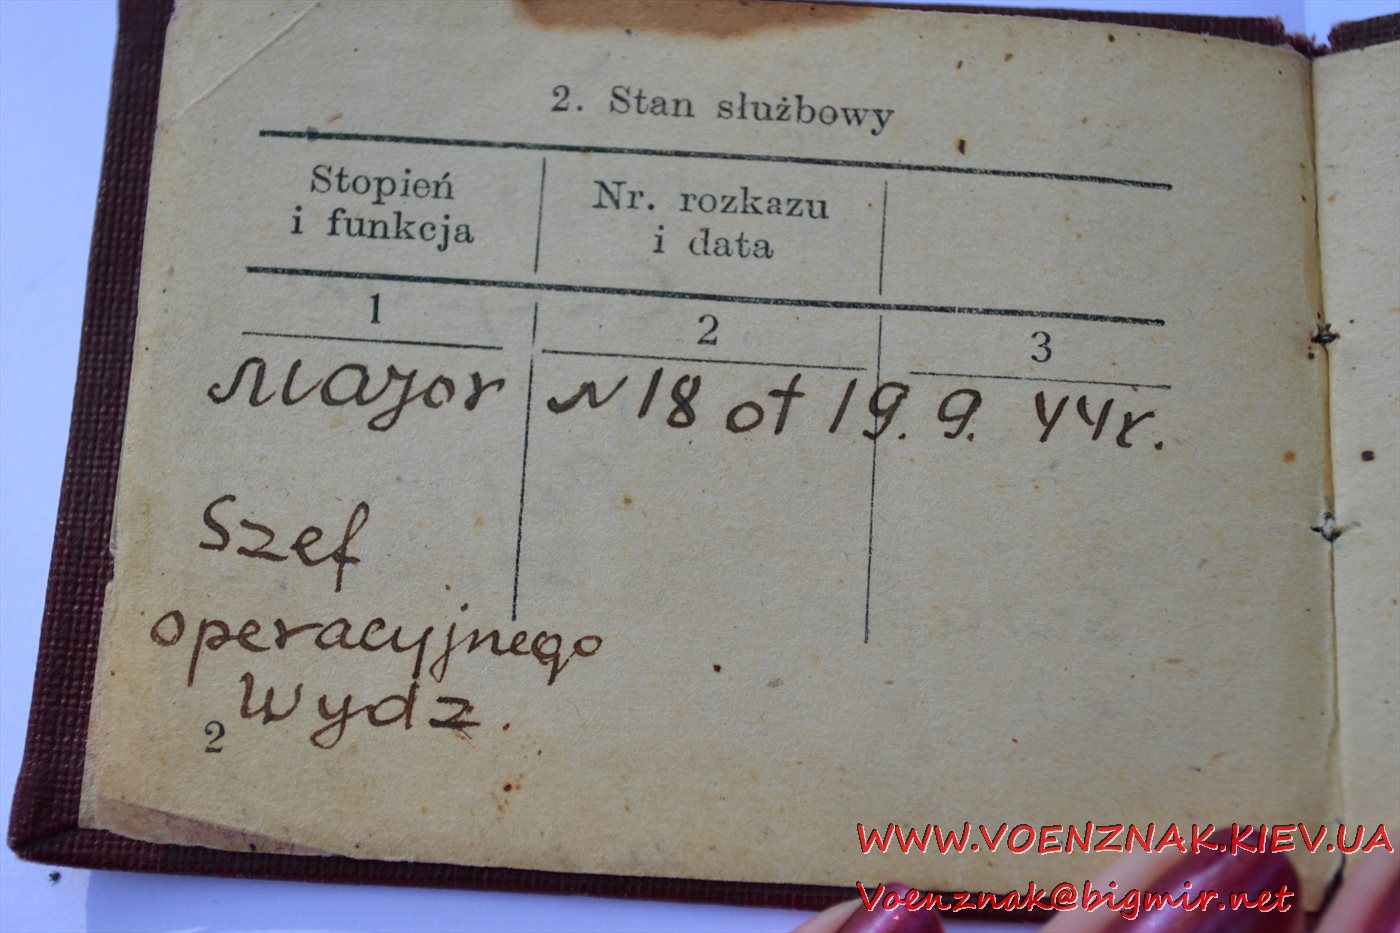 2. Stan służbowy
Stopień
i funkcja
Nr. rozkazu
i data
1
2
3
Major
N 18 ot 19. 9. 44r.
Szef
operacyjnego
Wydz.
2
WWW.VOENZNAK.KIEV.UA
Voenznak@bigmir.net